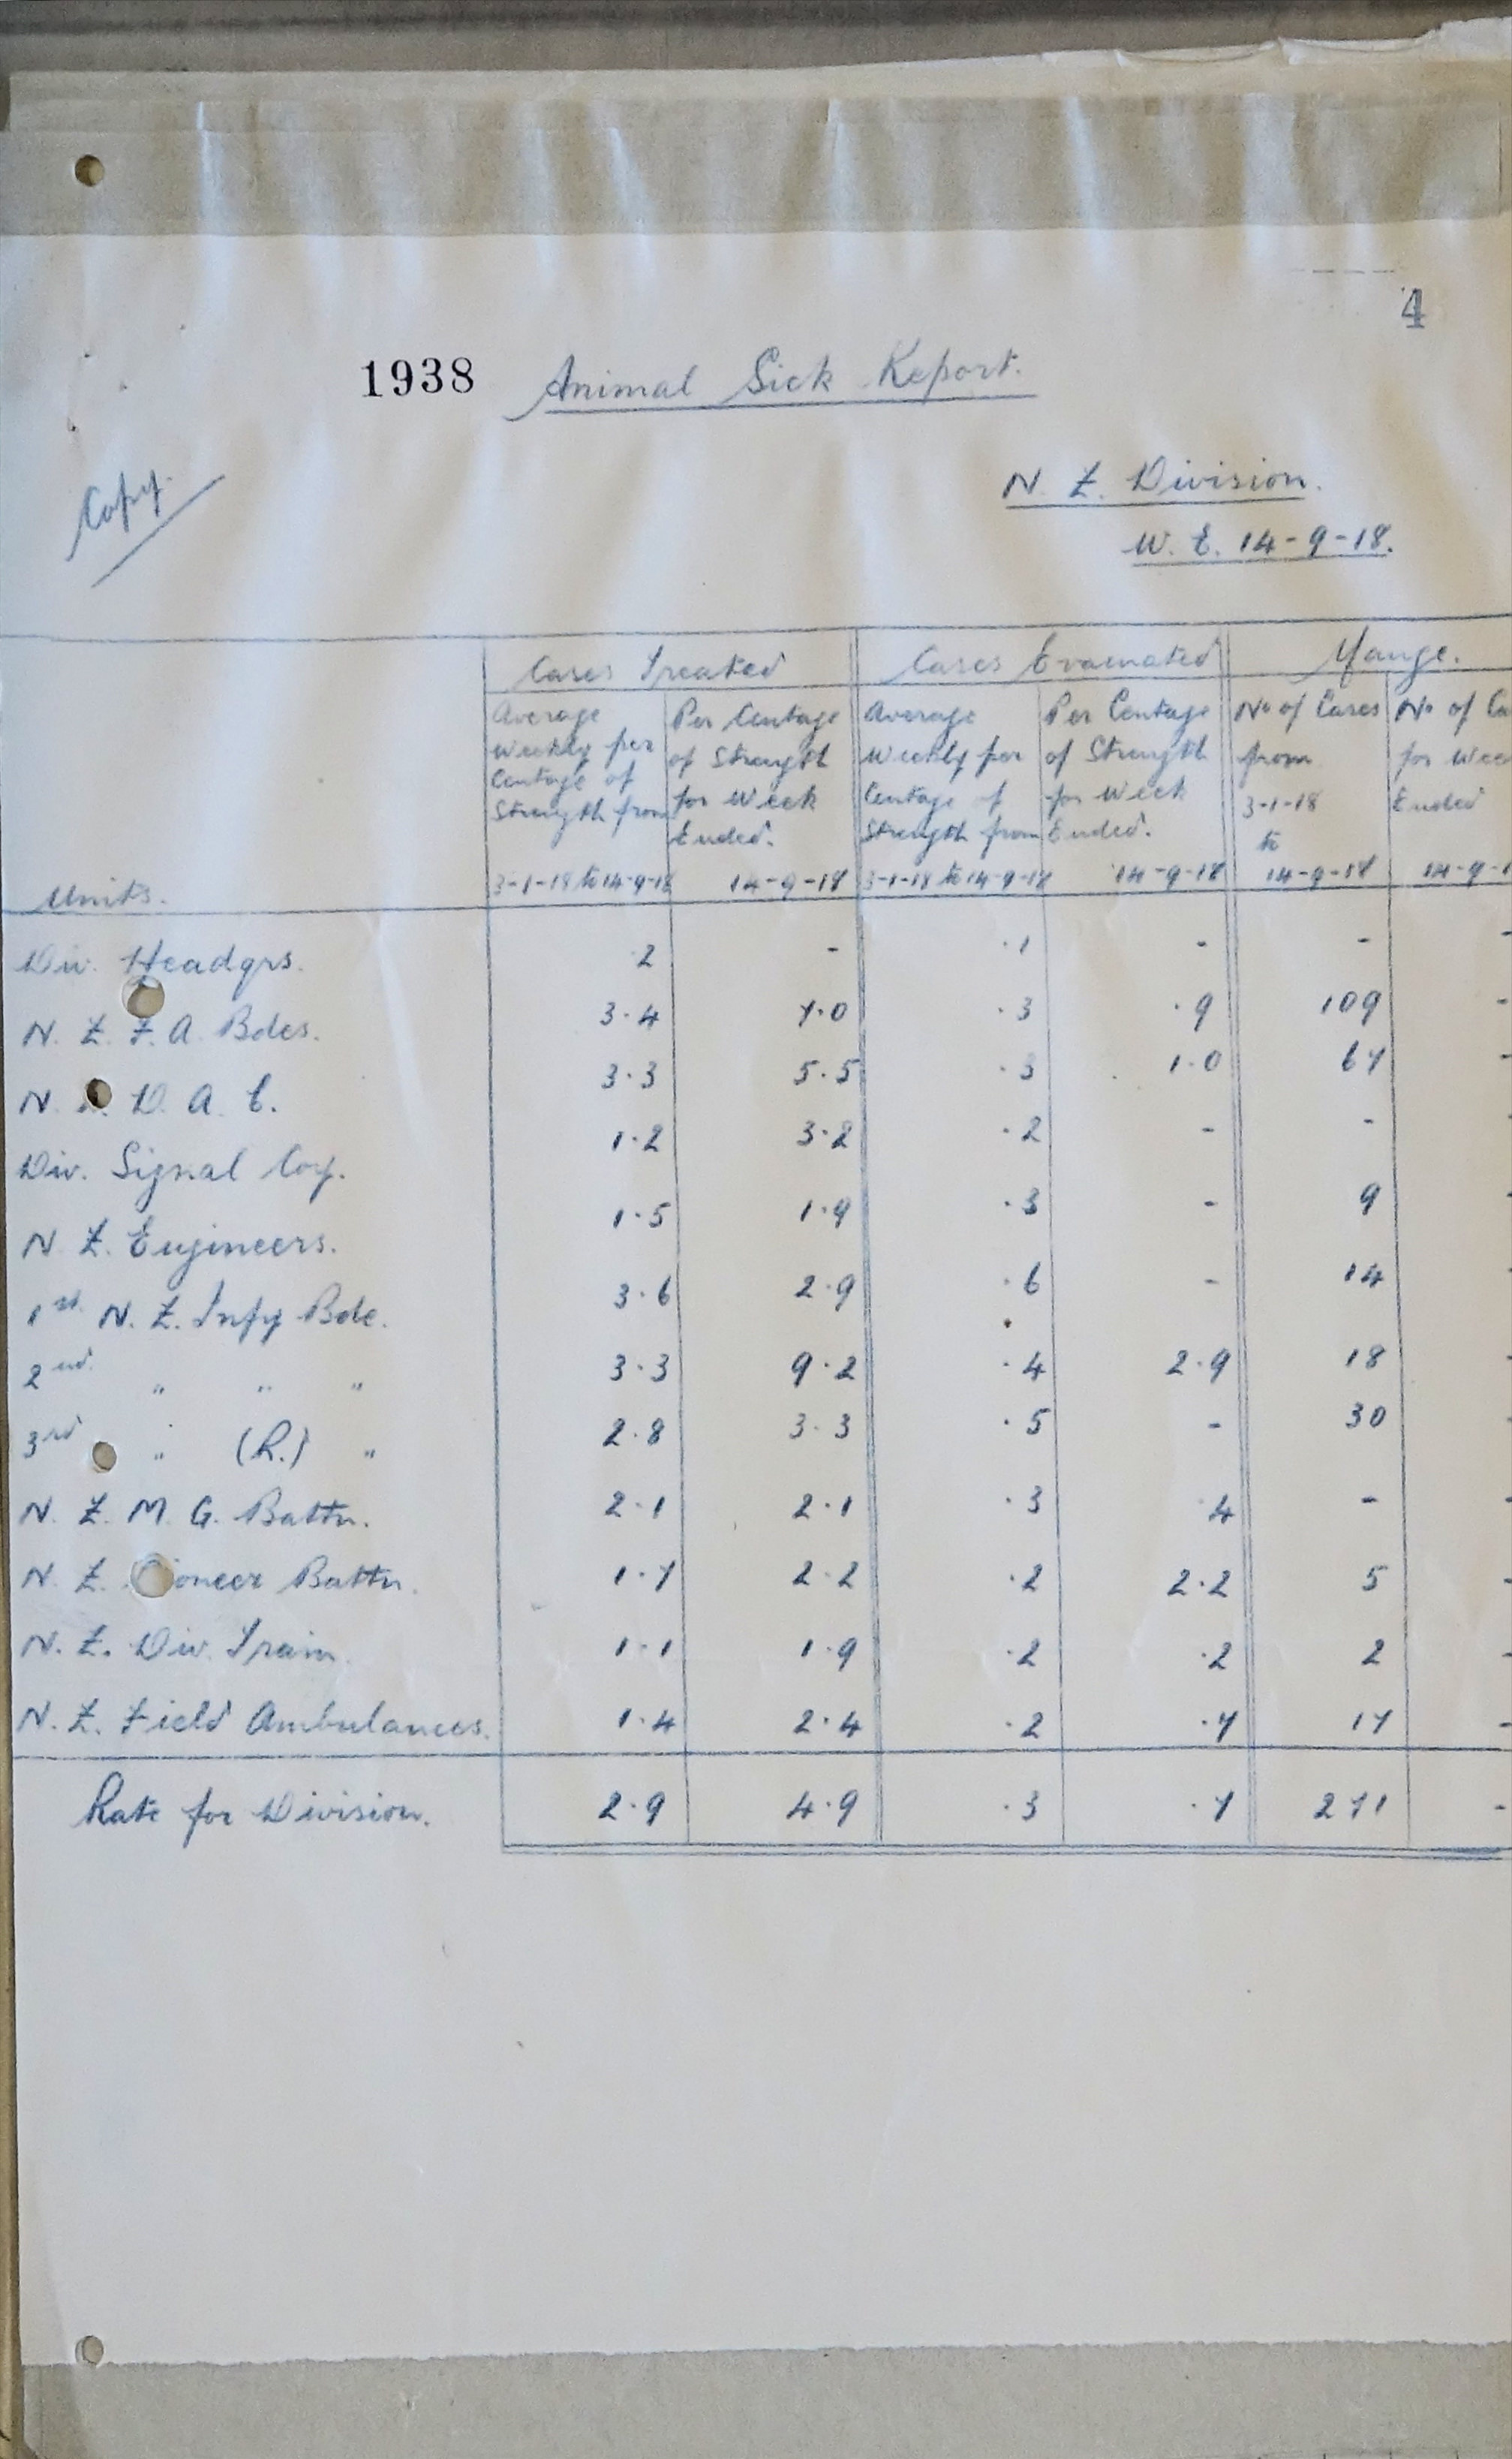 4
1938 Animal Sick Report.
Copy.
N. Z. Division.
W. E. 14-9-18.
Cases Treated Cases Evacuated Mange.
Units. Average Weekly per Centage of Strength from 3-1-18 to 14-9-18 Per Centage of Strength for Week Ended. 14-9-18 Average Weekly per Centage of Strength from 3-1-18 to 14-9-18 Per Centage of Strength for Week Ended. 14-9-18 No of Cases from 3-1-18 to 14-9-18 No of Ca for Wee Ended 14-9-1
Div. Headqrs. ·2 - ·1 - - -
N. Z. F. A. Bdes. 3·4 7·0 ·3 ·9 109 -
N. Z. D. A. C. 3·3 5·5 ·3 1·0 67 -
Div. Signal Coy. 1·2 3·2 ·2 - - -
N. Z. Engineers. 1·5 1·9 ·3 - 9 -
1st N. Z. Infy Bde. 3·6 2·9 ·6 - 14 -
2nd. " " " 3·3 9·2 ·4 2·9 18 -
3rd " (R.) " 2·8 3·3 ·5 - 30 -
N. Z. M. G. Battn. 2·1 2·1 ·3 ·4 - -
N. Z. Pioneer Battn. 1·7 2·2 ·2 2·2 5 -
N. Z. Div. Train. 1·1 1·9 ·2 ·2 2 -
N. Z. Field Ambulances. 1·4 2·4 ·2 ·7 17 -
Rate for Division. 2·9 4·9 ·3 ·7 271 -